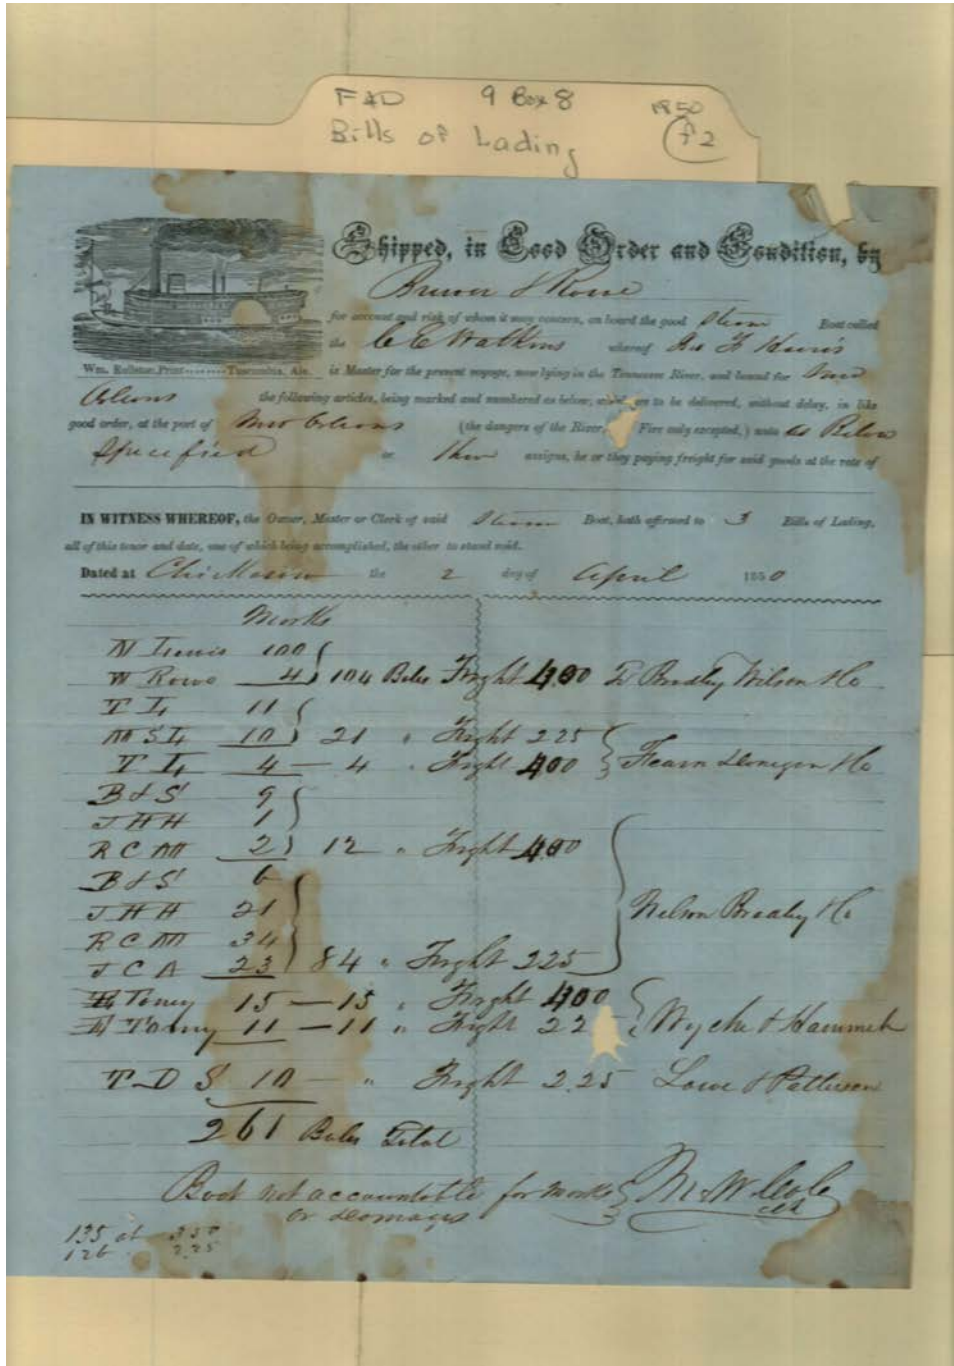 F&D 9 Box 8 1850
Bills of Lading f2
Shipped, in Good Order and Condition, by
Brewer & Rowe
for account and risk of whom it may concern, on board the good Steam Boat called
the C E Watkins whereof
Wm. Rollston, Print Tuscumbia, Ala.
is Master for the present voyage, now lying in the Tennessee River, and bound for New
Orleans the following articles, being marked and numbered as below, are to be delivered, without delay, in like
good order, at the port of New Orleans (the dangers of the River, Fire only excepted,) unto as Below
Specified or their assigns, he or they paying freight for said goods at the rate of
IN WITNESS WHEREOF, the Owner, Master or Clerk of said Steam Boat, hath affirmed to 3 Bills of Lading,
all of this tenor and date, one of which being accomplished, the other to stand void.
Dated at the 2 day of April 1850
Marks
100
W Rowe 4 104 Bales Freight 4.00 Bradley Wilson & Co
T L 11
M S L 10 21 " Freight 2.25
T L 4 — 4 " Freight 4.00 Fearn Donegan & Co
B & S 9
J H H 1
R C M 2 12 " Freight 4.00
B & S 6
J H H 21
R C M 34 Nelson Bradley & Co
J C A 23 84 " Freight 2.25
Toney 15 — 15 " Freight 4.00
Toney 11 — 11 " Freight 2.2 Wyche &
T D S 10 — " Freight 2.25 Lowe & Pattison
261 Bales Total
Boat not accountable for Marks M. W.
or Damages
135 at 3.50
126 2.25